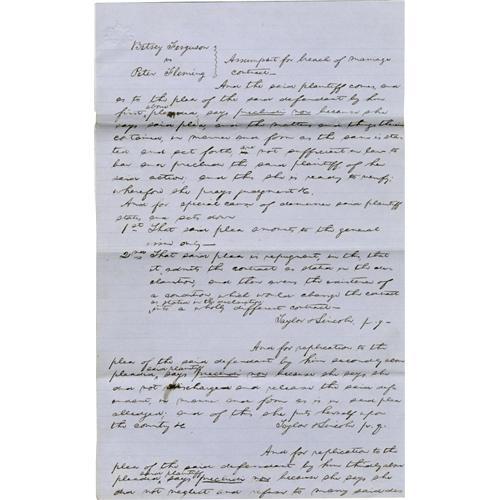 Betsey Ferguson
vs
Peter Fleming
Assumpsit for breach of marriage
contract—
And the said plaintiff comes, and
as to the plea of the said defendant by him
first above pleaded, says precludi non because she
says said plea, and the matters and things therein
contained, in manner and form as the same is sta-
ted and set forth, are not sufficient in law to
bar and preclude the said plaintiff of her
said action; and this she is ready to verify;
wherefore she prays judgment &c.
And for special causes of demurrer said plaintiff
states and sets down
1st That said plea amounts to the general
issue only—
2nd That said plea is repugnant, in this, that
it admits the contract as stated in the de-
claration, and then avers the existence of
a condition which would change this contract
as stated in the declaration
into a wholly different contract—
Taylor & Lincoln p. q—
And for replication to the
plea of the said defendant by him secondly above
pleaded, said plaintiff says precludi non because she says, she
did not discharge and release the said def-
endant, in manner and form as is in said plea
alledged; and of this she puts herself upon
the country &c Taylor & Lincoln p. q.
And for replication to the
plea of the said defendant by him thirdly above
pleaded, said plaintiff says precludi non because she says she
did not neglect and refuse to marry said def-